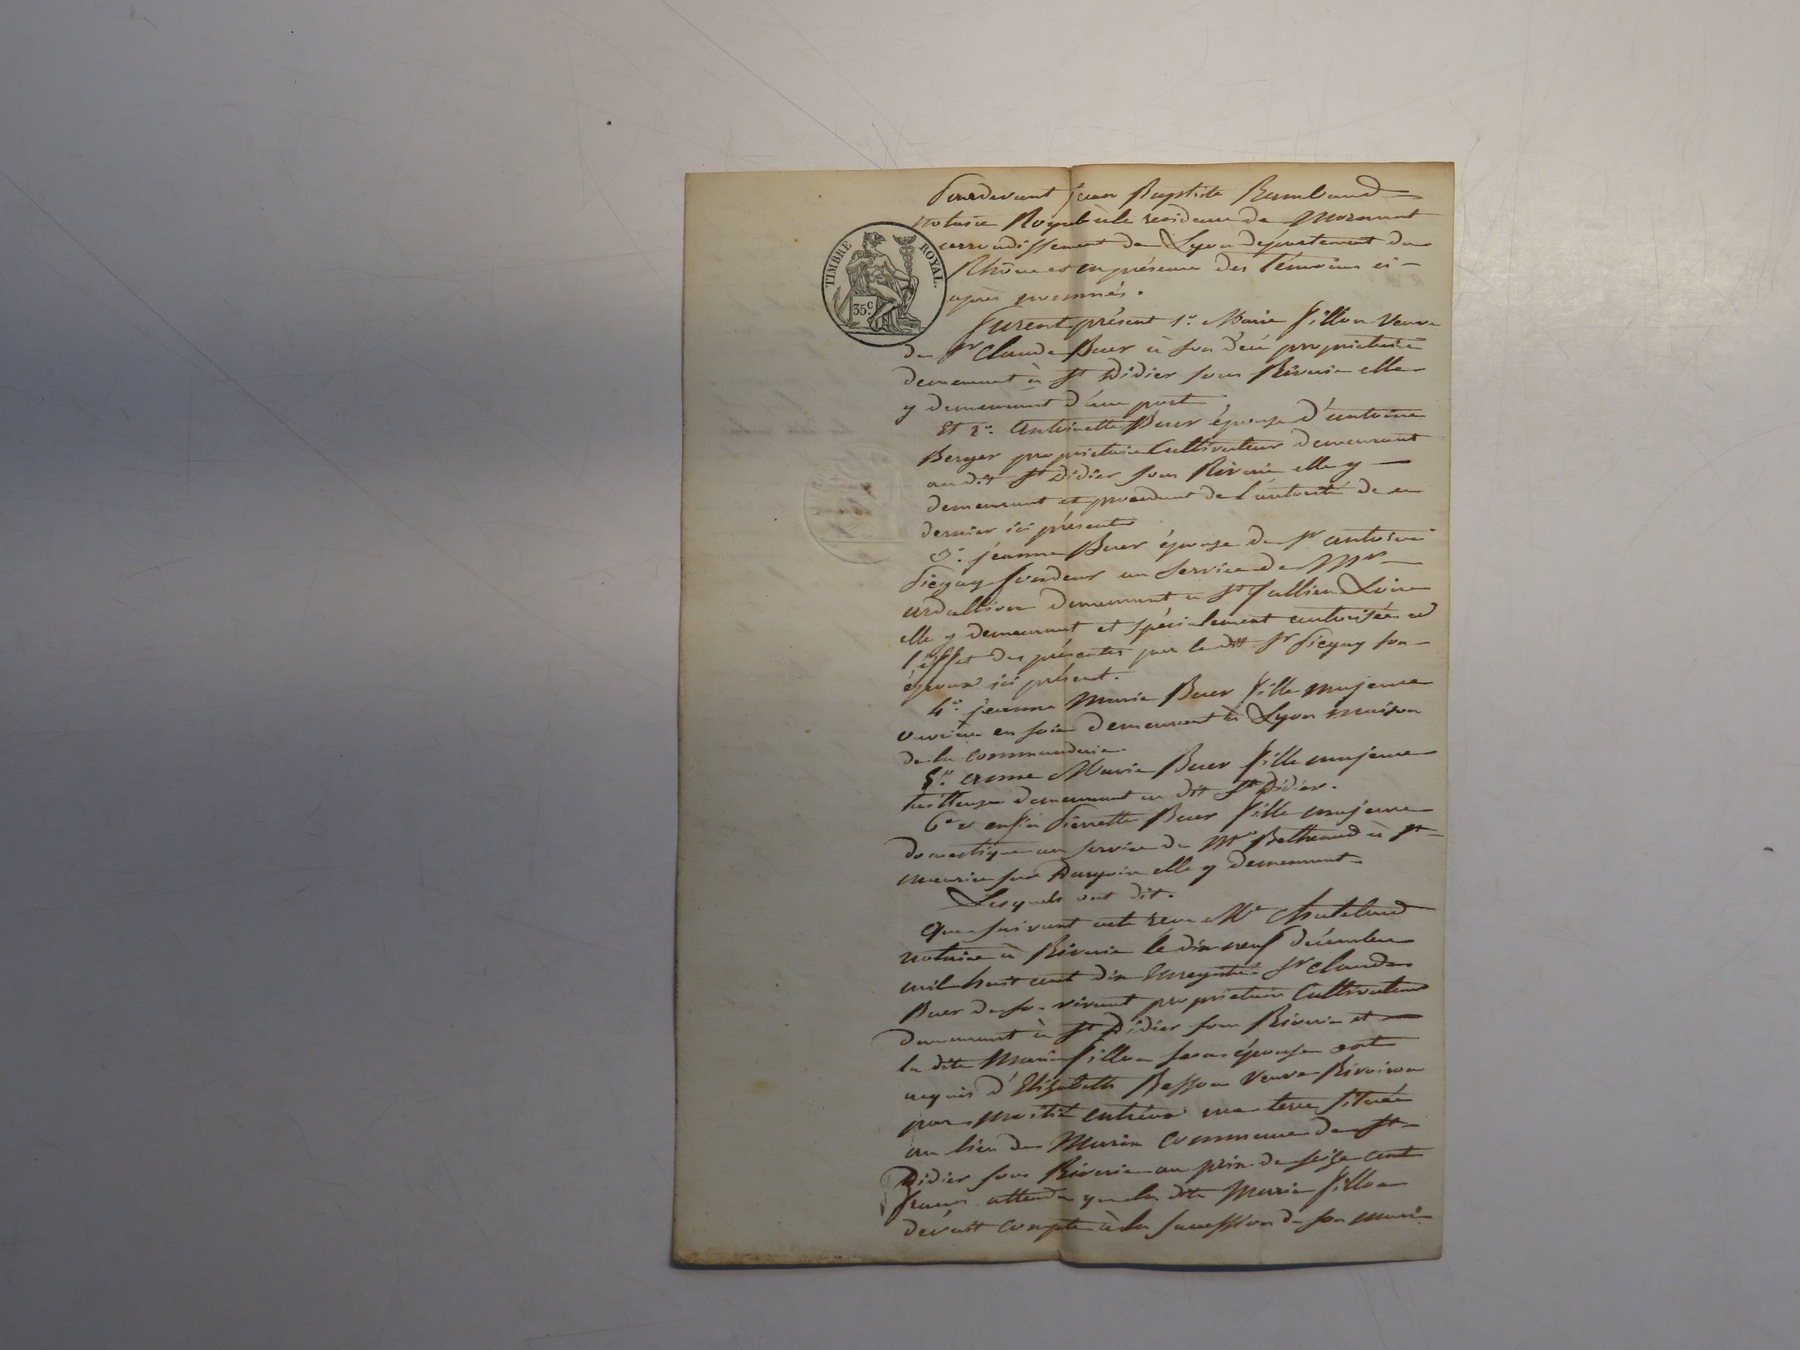 TIMBRE ROYAL.
35c
Pardevant Jean Baptiste Rambaud
notaire Royal à la residence de Mornant
arrondissement de Lyon département du
Rhône et en présence des témoins ci-
après nommés.
Furent présent 1° Marie Fillon veuve
de Sr Claude Buer à son décé propriétaire
demeurant à St Didier sous Riverie elle
y demeurant d'une part
Et 2° Antoinette Buer épouse d'antoine
Berger propriétaire Cultivateur demeurant
au dit St Didier sous Riverie elle y
demeurant et procédant de l'autorité de ce
dernier ici présent
3° jeanne Buer épouse de Sr antoine
fondeur au Service de Mr
demeurant à St Jullien Loire
elle y demeurant et spécialement autorisée a
l'effet des présentes par le dit Sr son
époux ici présent.
4° jeanne Marie Buer fille majeure
ouvrière en soie demeurant à Lyon maison
de la commanderie.
5° anne Marie Buer fille majeure
tailleuse demeurant au dit St Didier.
6° et enfin Pierrette Buer fille majeure
domestique au service de Mr à St
maurice sur Dargoire elle y demeurant.
Lesquels ont dit.
Que suivant acte reçu Me Chatelard
notaire à Riverie le dix neuf décembre
mil huit cent dix Enregistré Sr Claude
Buer de son vivant propriétaire Cultivateur
demeurant à St Didier sous Riverie et
la dite Marie Fillon son épouse ont
acquis d'Elizabeth Basson veuve Rivoiron
par moitié entreux une terre située
au lieu de Marin Commune de St
Didier sous Riverie au prix de seize cent
francs attendu que la dite Marie Fillon
devait compte à la succession de son mari